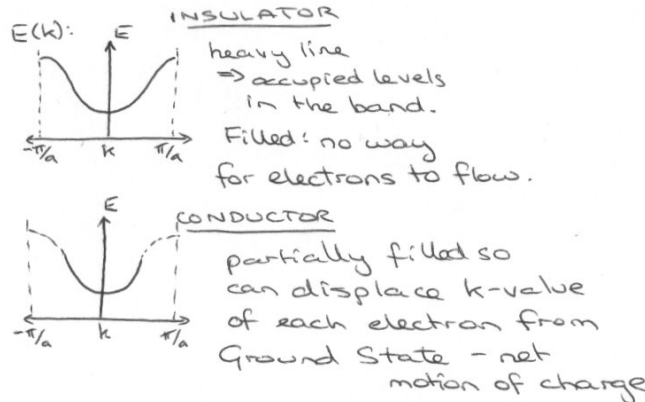 INSULATOR
E(k):
E
heavy line
⇒ occupied levels
in the band.
Filled: no way
for electrons to flow.
-π/a k π/a
CONDUCTOR
E
partially filled so
can displace k-value
of each electron from
Ground State - net
motion of charge
-π/a k π/a